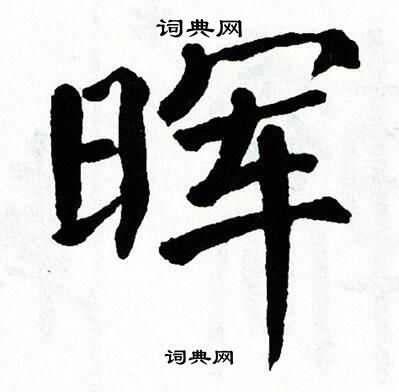 词典网
晖
词典网